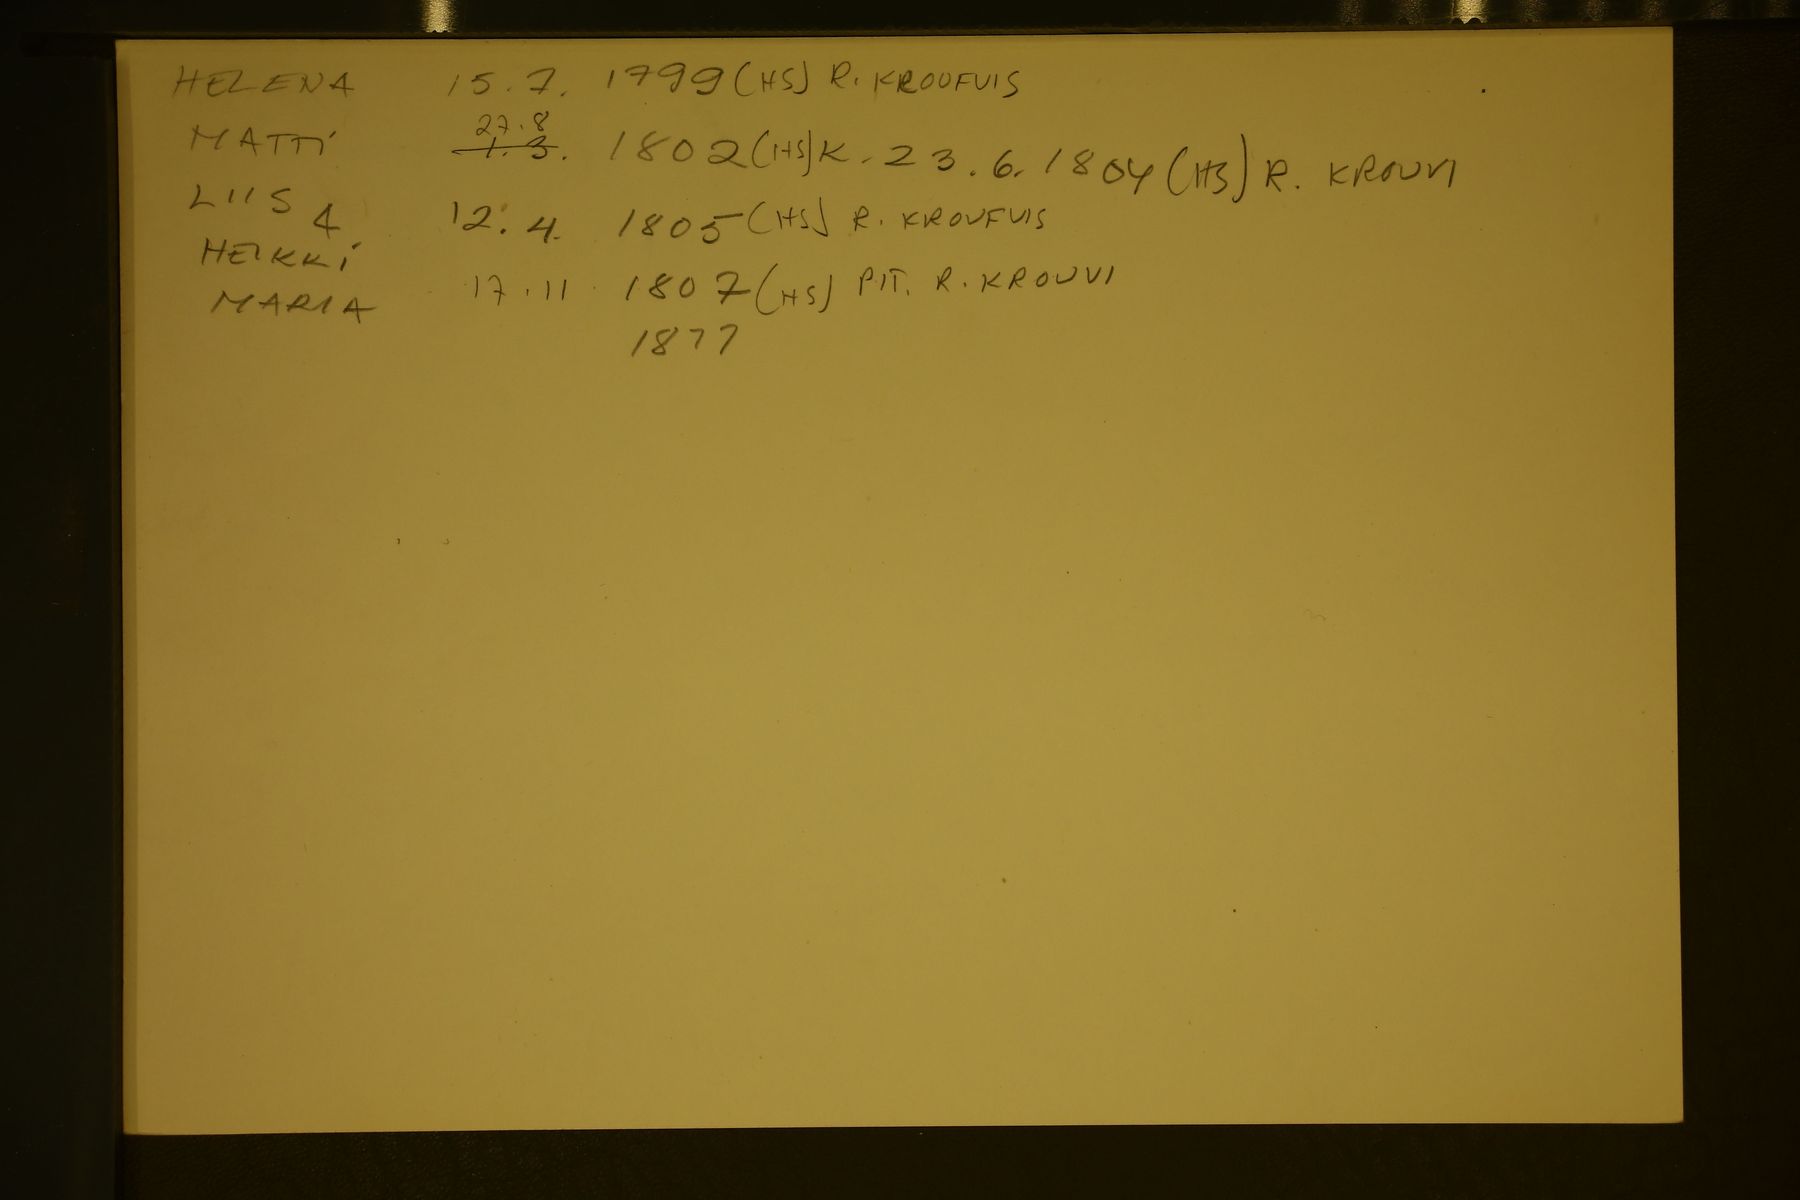 HELENA 15.7. 1799 (HS) R. KROUFVIS
MATTI 27.8 1.3. 1802 (HS) K. 23.6.1804 (HS) R. KROUVI
LIISA 12.4. 1805 (HS) R. KROUFVIS
HEIKKI 17.11 1807 (HS) PIT. R. KROUVI
MARIA 1877